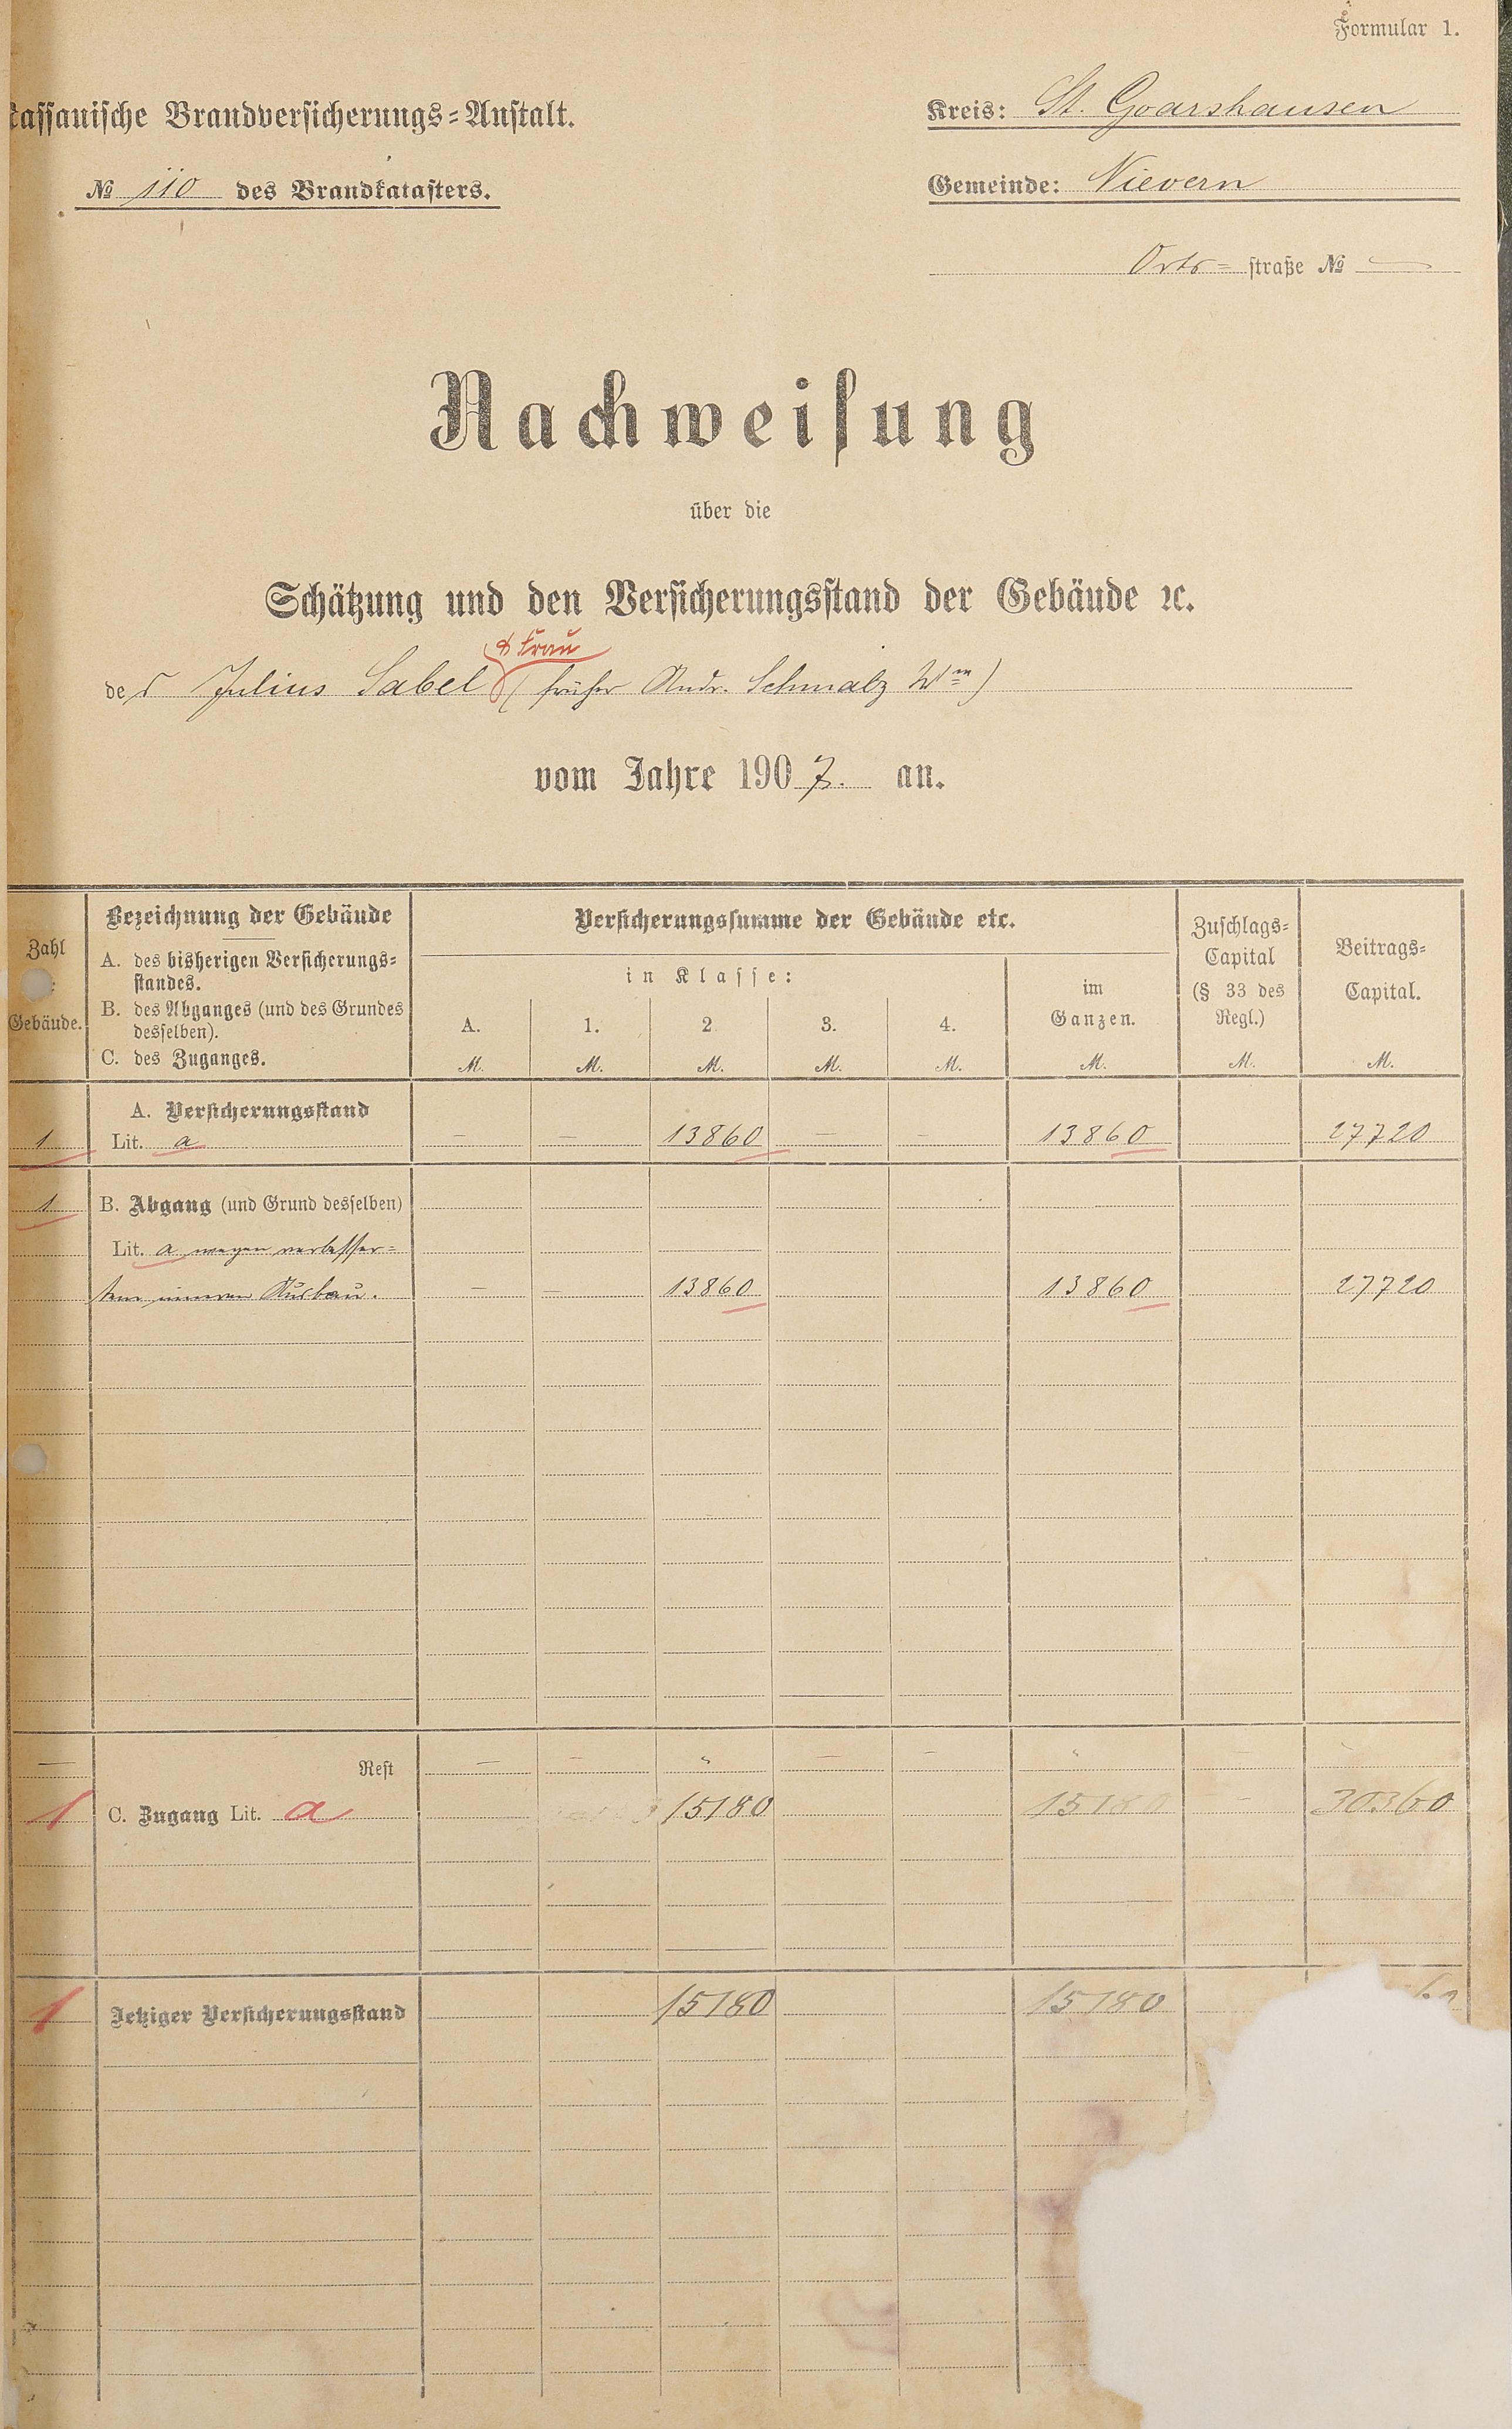 Formular 1.
Nassauische Brandversicherungs-Anstalt.
Kreis: St. Goarshausen
№ 110 des Brandkatasters.
Gemeinde: Nievern
Orts- straße № —
Nachweisung
über die
Schätzung und den Versicherungsstand der Gebäude ꝛc.
& Frau
der Julius Sabel (früher Andr. Schmalz Wwe)
vom Jahre 1907. an.
Zahl Gebäude.
Bezeichnung der Gebäude
A. des bisherigen Versicherungs-
standes.
B. des Abganges (und des Grundes
desselben).
C. des Zuganges.
Versicherungssumme der Gebäude etc.
in Klasse:
A. 1. 2 3. 4.
M. M. M. M. M.
im
Ganzen.
M.
Zuschlags-
Capital
(§ 33 des
Regl.)
M.
Beitrags-
Capital.
M.
A. Versicherungsstand
1 Lit. a — — 13860 — — 13860 27720
1 B. Abgang (und Grund desselben)
Lit. a wegen verbesser-
tem inneren Ausbau. — — 13860 13860 27720
— Rest — — " — — " —
1 C. Zugang Lit. a 15180 15180 — 30360
1 Jetziger Versicherungsstand 15180 15180